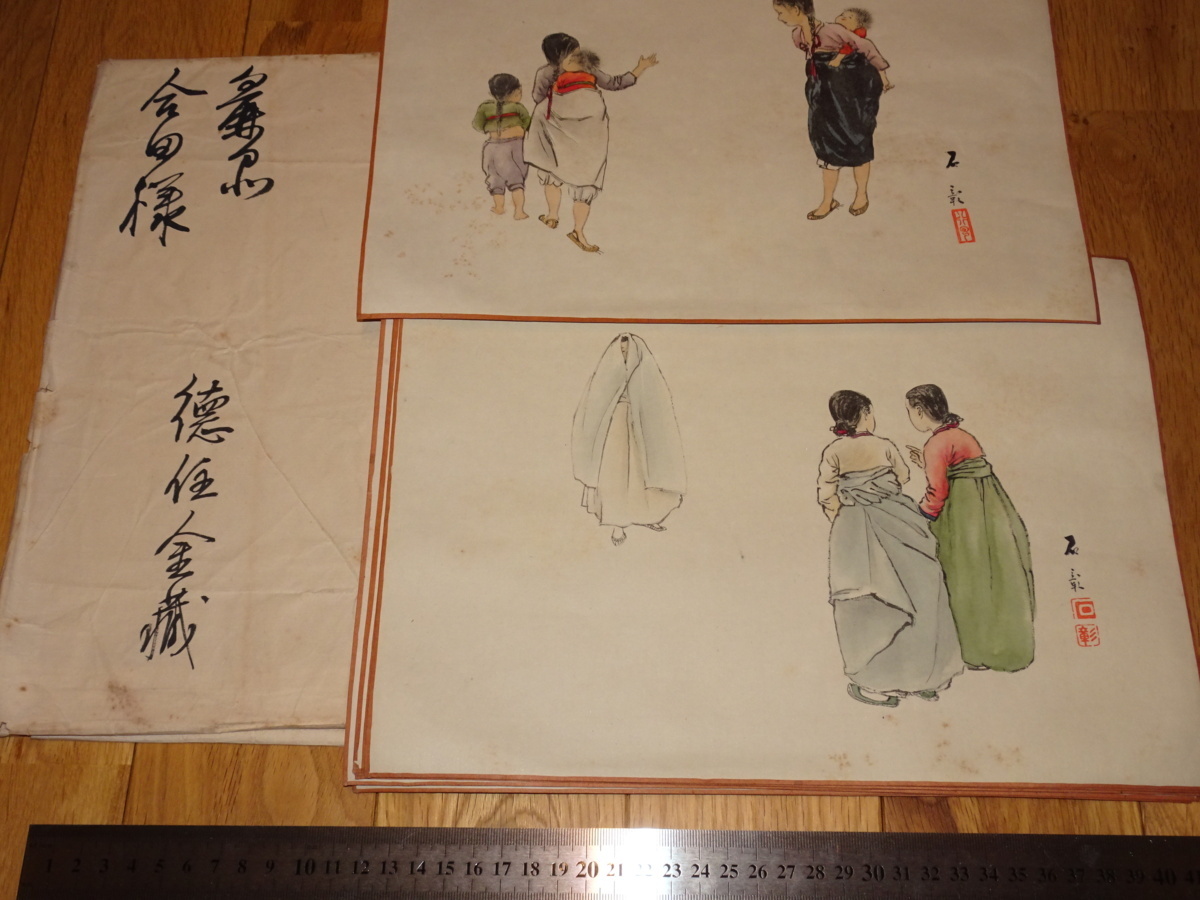 合田様
德任金藏
石
彰
石
彰
彰
1 2 3 4 5 6 7 8 9 10 11 12 13 14 15 16 17 18 19 20 21 22 23 24 25 26 27 28 29 30 31 32 33 34 35 36 37 38 39 40 41